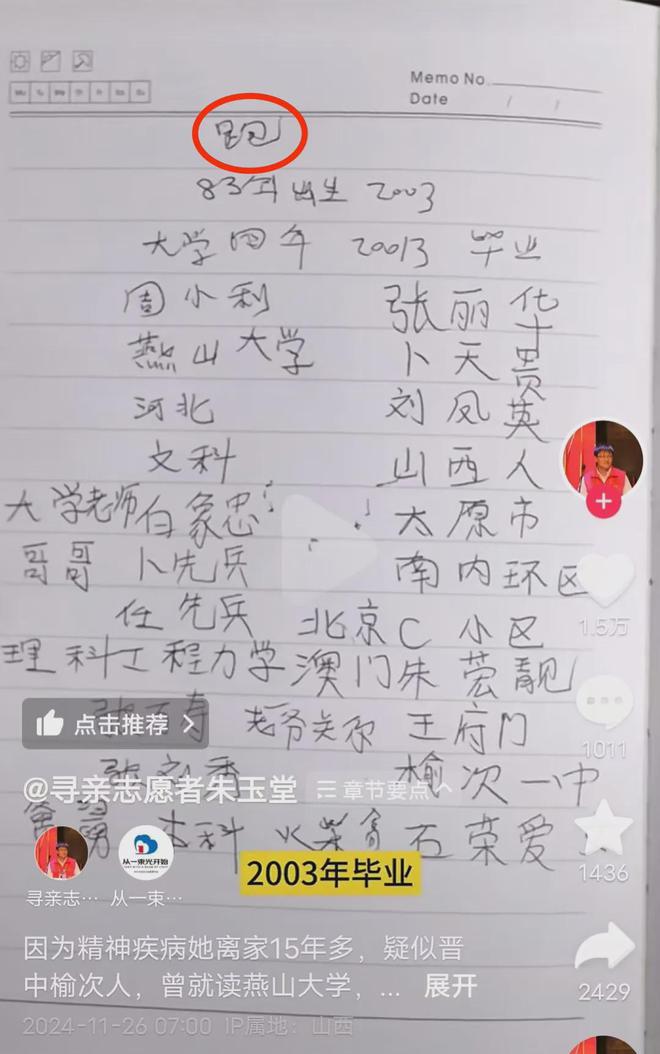 Memo No.
Date / /
跑
83年出生 2003
大学四年 20013 毕业
周小利 张丽华
燕山大学 卜天贵
河北 刘凤英
文科 山西人
大学老师白象忠 太原市
哥哥 卜先兵 南内环区
任先兵 北京C小区
1.5万
理科工程力学 澳门朱芸靓
点击推荐 >
王府门
1011
@寻亲志愿者朱玉堂 章节要点
榆次一中
本科 火柴 石荣爱
1436
从一束光开始
2003年毕业
寻亲志… 从一束…
因为精神疾病她离家15年多，疑似晋
中榆次人，曾就读燕山大学，... 展开
2429
2024-11-26 07:00 IP属地：山西